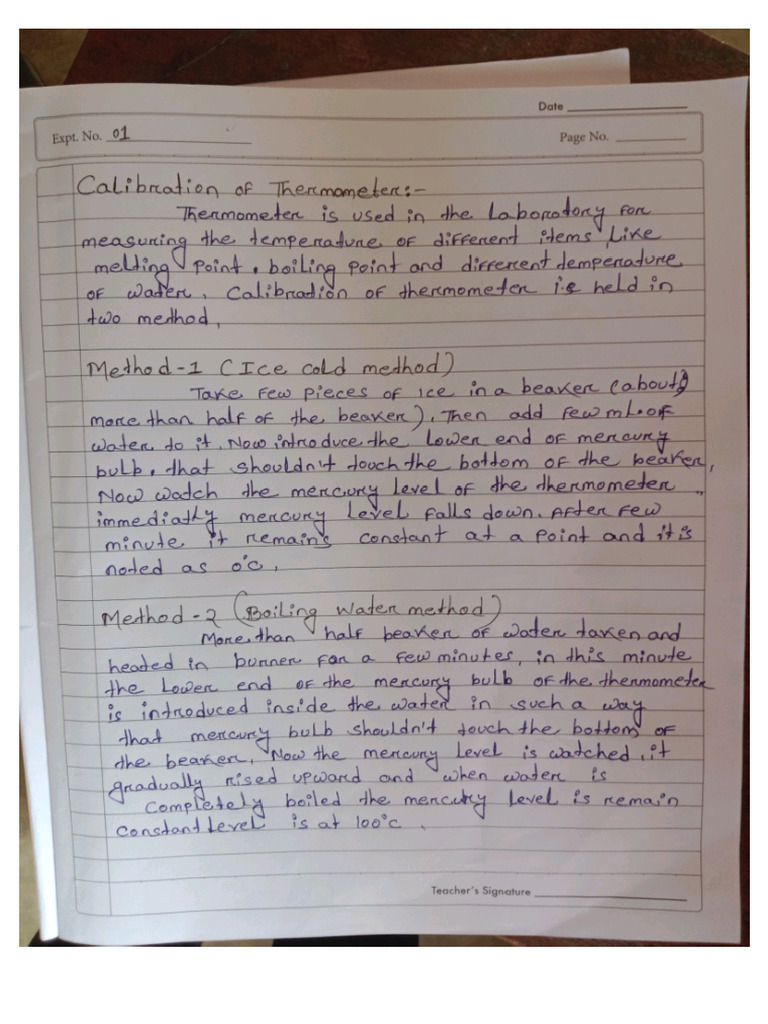 Date
Expt. No. 01
Page No.
Calibration of Thermometer:-
Thermometer is used in the Laboratory for
measuring the temperature of different items, Like
melting point, boiling point and different temperature
of water. Calibration of thermometer is held in
two method,
Method-1 (Ice cold method)
Take few pieces of ice in a beaker (about)
more than half of the beaker), Then add few ml. of
water to it. Now introduce the lower end of mercury
bulb, that shouldn't touch the bottom of the beaker,
Now watch the mercury level of the thermometer
immediatly mercury level falls down. After few
minute it remains constant at a point and it is
noted as 0°c,
Method-2 (Boiling water method)
More than half beaker of water taken and
heated in burner for a few minutes, in this minute
the Lower end of the mercury bulb of the thermometer
is introduced inside the water in such a way
that mercury bulb shouldn't touch the bottom of
the beaker, Now the mercury level is watched, it
gradually rised upward and when water is
completely boiled the mercury level is remain
constant level is at 100°c.
Teacher's Signature